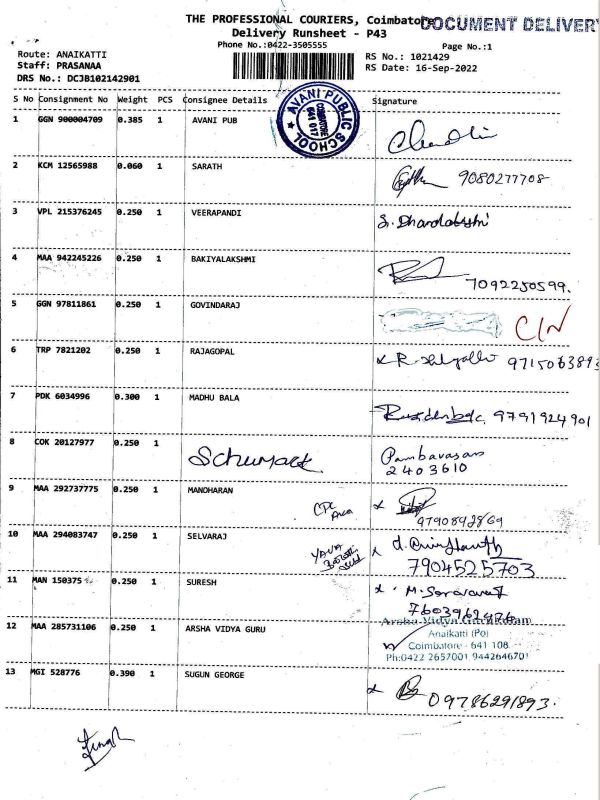 THE PROFESSIONAL COURIERS, Coimbatore
DOCUMENT DELIVERY
Delivery Runsheet - P43
Phone No.:0422-3505555
Page No.:1
Route: ANAIKATTI
RS No.: 1021429
Staff: PRASANAA
RS Date: 16-Sep-2022
DRS No.: DCJB102142901
S No Consignment No Weight PCS Consignee Details Signature
1 GGN 900004709 0.385 1 AVANI PUB
AVANI PUBLIC SCHOOL
COIMBATORE 641 017
2 KCM 12565988 0.060 1 SARATH 9080277708
3 VPL 215376245 0.250 1 VEERAPANDI
4 MAA 942245226 0.250 1 BAKIYALAKSHMI
7092250599.
5 GGN 97811861 0.250 1 GOVINDARAJ
C/N
6 TRP 7821202 0.250 1 RAJAGOPAL
7 PDK 6034996 0.300 1 MADHU BALA
9791924901
8 COK 20127977 0.250 1
Pambavasan
2403610
9 MAA 292737775 0.250 1 MANOHARAN
9790892869
10 MAA 294083747 0.250 1 SELVARAJ
7904525703
11 MAN 150375 0.250 1 SURESH M. Saravanan
12 MAA 285731106 0.250 1 ARSHA VIDYA GURU
Arsha Vidya Gurukulam
Anaikatti (Po)
Coimbatore - 641 108
Ph:0422 2657001 944264670
13 MGI 528776 0.390 1 SUGUN GEORGE
09786291893.